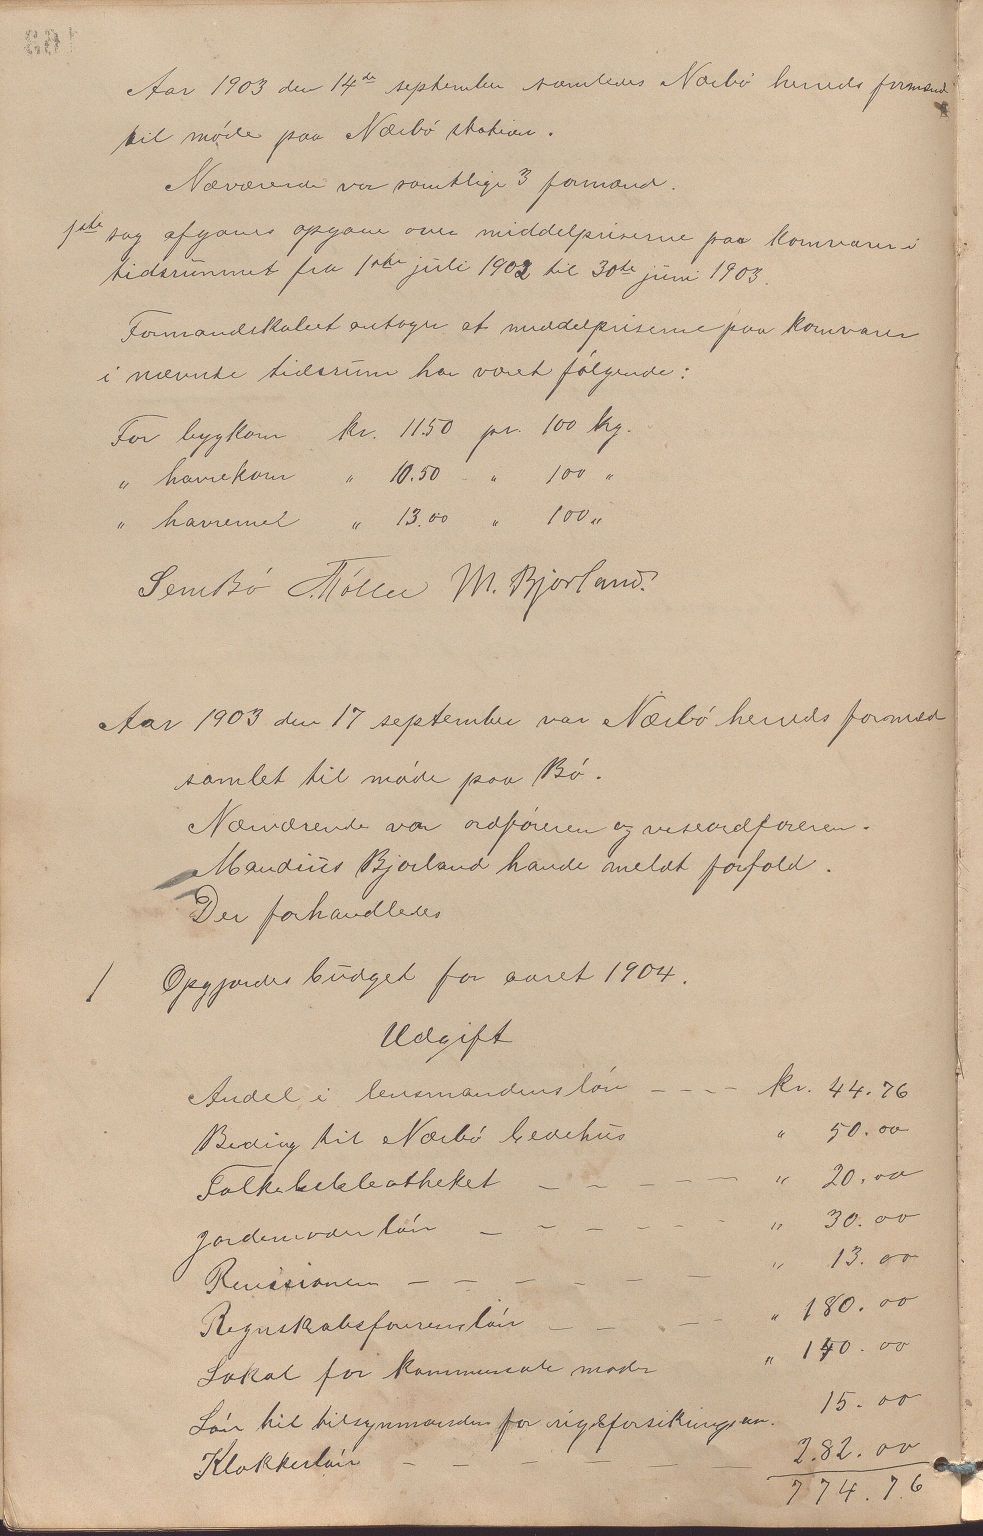 Aar 1903 den 14de september samledes Nærbø herreds formænd
til møde paa Nærbø station.
Næværende var samtlige 3 formænd.
1ste sag afgaves opgave over middelpriserne paa kornvarer i
tidsrummet fra 1ste juli 1902 til 30te juni 1903.
Formandskabet antager at middelpriserne paa kornvarer
i nævnte tidsrum har været følgende:
For bygkorn kr. 11.50 pr. 100 kg.
" havrekorn " 10.50 " 100 "
" havremel " 13.00 " 100 "
SemBø T. Möller M. Bjorland.
Aar 1903 den 17 september var Nærbø herreds formæd
samlet til møde paa Bø.
Nærværende var ordføreren og viseordføreren.
Maudius Bjorland havde meldt forfald.
Der forhandledes
1 Opgjordes budget for aaret 1904.
Udgift
Andel i lensmandensløn - - - kr. 44.76
Beding til Nærbø bedehus " 50.00
Folkebibleotheket - - - - - " 20.00
Jordemoderløn - - - - - " 30.00
Revisionen - - - - - - " 13.00
Regnskabsførerensløn - - - - " 180.00
Lokal for kommunale møder " 140.00
Løn til tilsynmanden for rigsforsikringen. 15.00
Klokkerløn - - - - - - 282.00
774.76